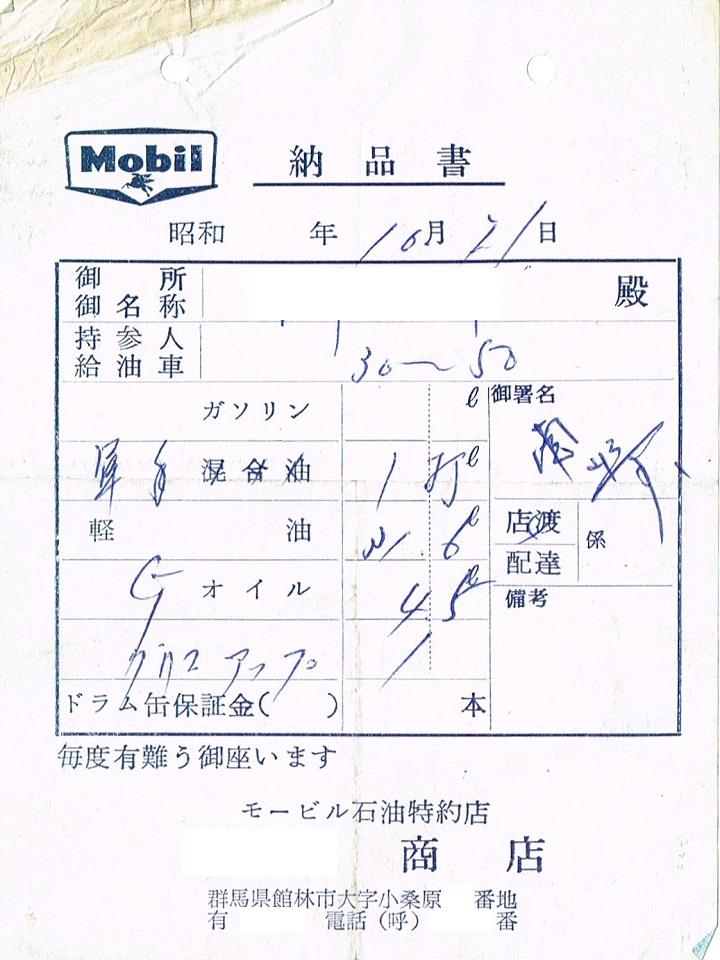 Mobil
納品書
昭和 年 10月21日
御所
御名称 殿
持参人
給油車 30〜50
ガソリン ℓ 御署名
混合油 1 打 ℓ
軽油 ℓ 店渡 係
配達
G オイル 45 ℓ 備考
グリスアップ 1
ドラム缶保証金( ) 本
毎度有難う御座います
モービル石油特約店
商店
群馬県館林市大字小桑原 番地
有 電話(呼) 番